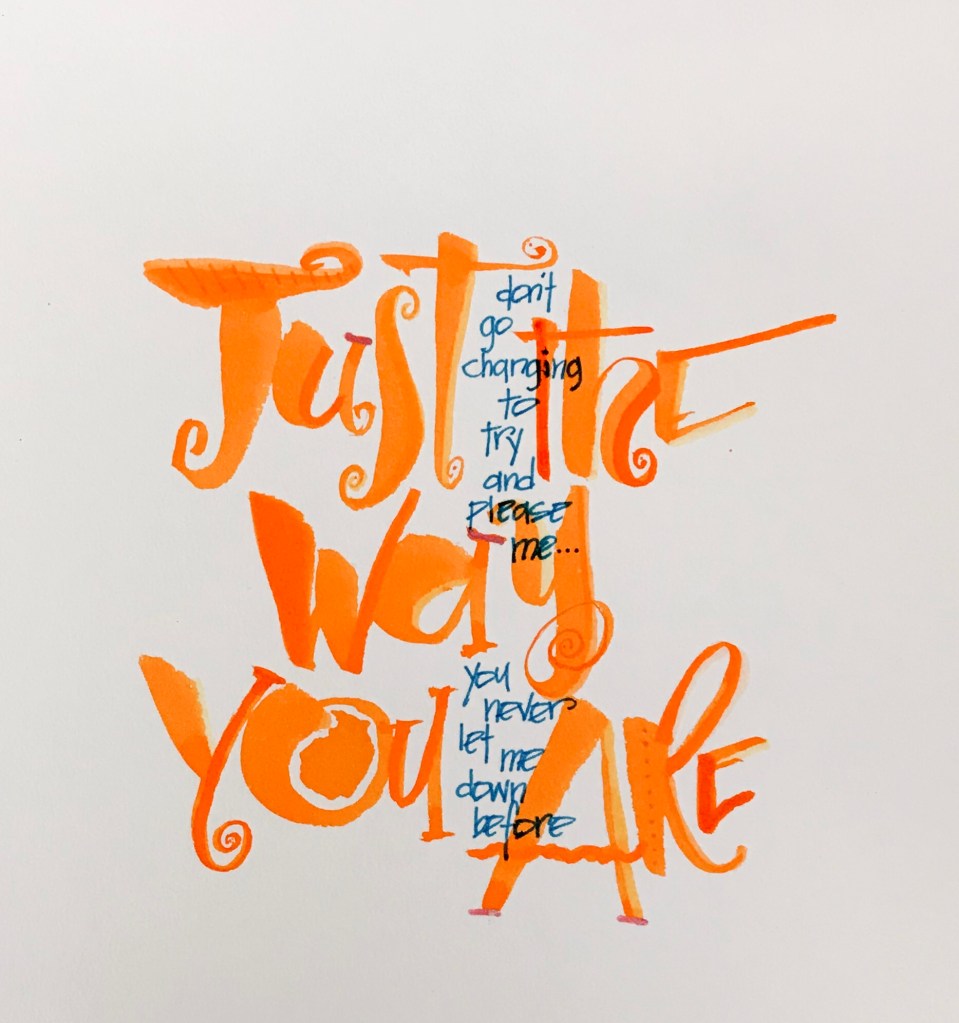 Just the
Way
You Are
don't
go
changing
to
try
and
please
me...
you
never
let me
down
before